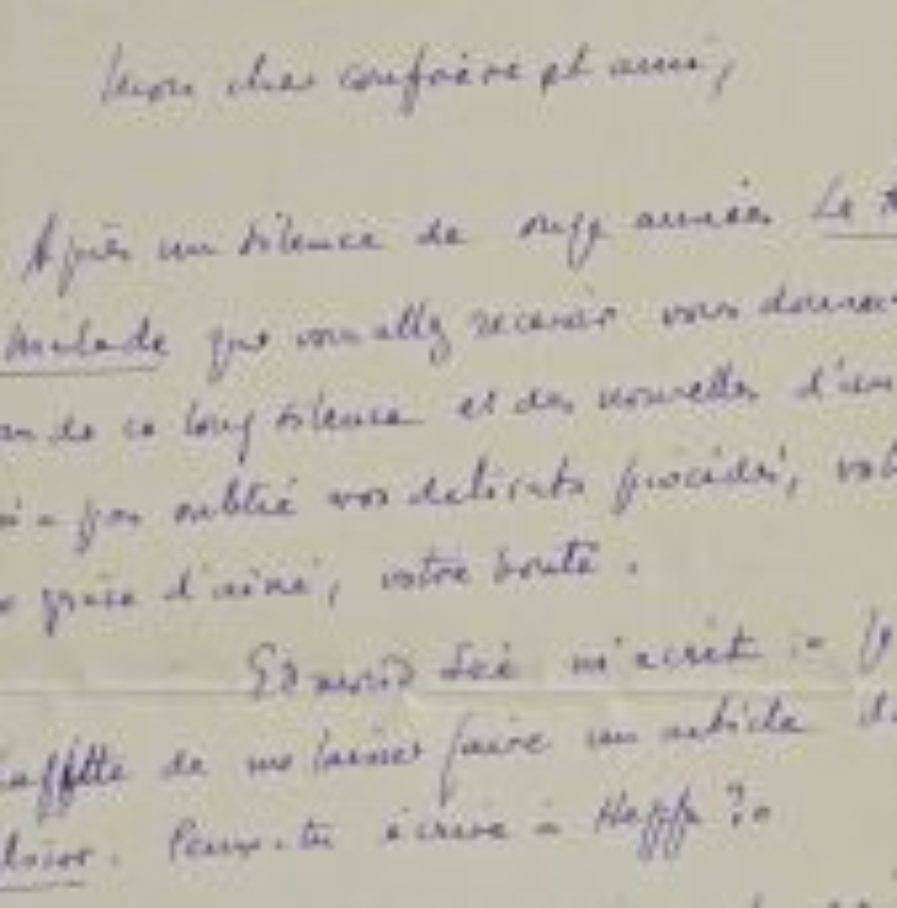 Mon cher confrère et ami,
Après un silence de onze années Le
malade que vous allez recevoir vous donner
de ce long silence et des nouvelles d'un
pas oublié vos délicats procédés, vot
grâce d'aîné, votre bonté.
Edmond Sée m'écrit : "
de me laisser faire un article d
Peux-tu écrire à Hepp ?"